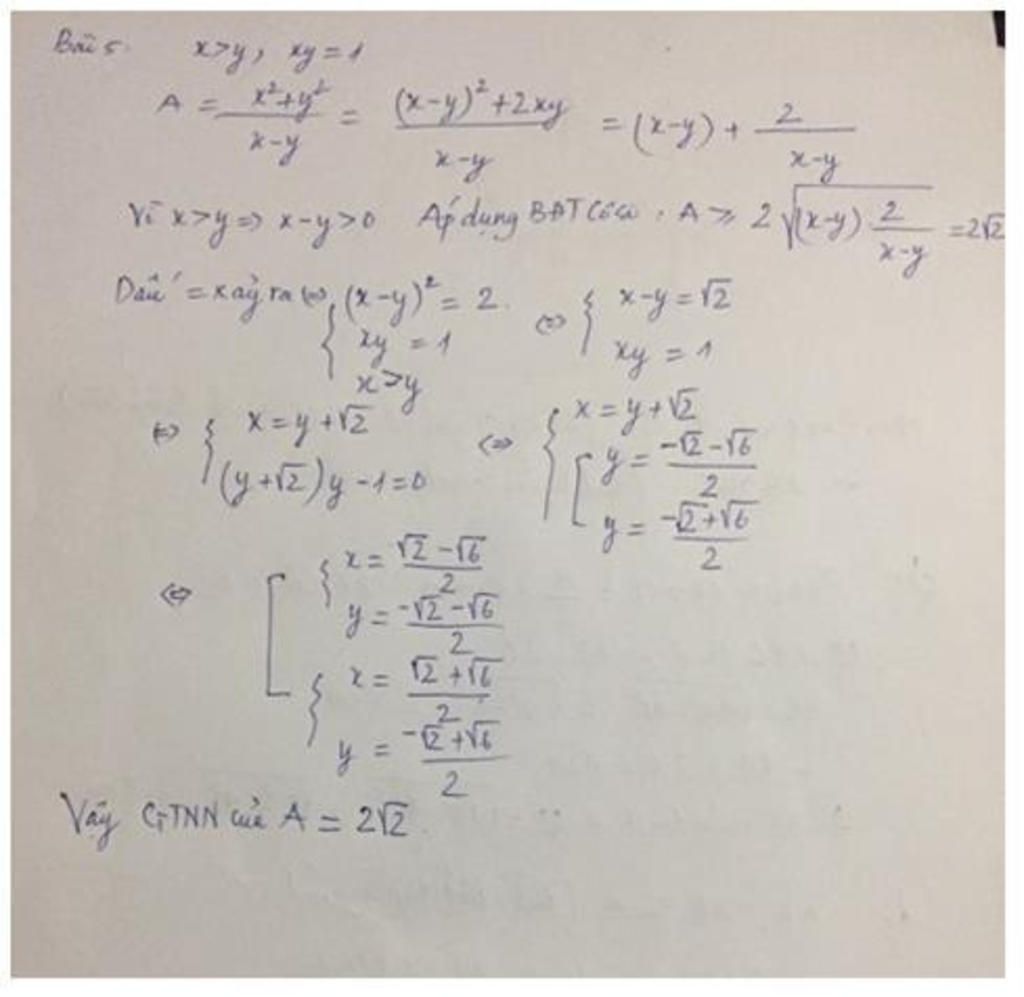 Bài 5. x>y, xy = 1
A = \frac{x^2+y^2}{x-y} = \frac{(x-y)^2+2xy}{x-y} = (x-y) + \frac{2}{x-y}
Vì x>y => x-y>0 Áp dụng BĐT Côsi. A ≥ 2\sqrt{(x-y).\frac{2}{x-y}} = 2√2
Dấu "= xảy ra <=> { (x-y)^2 = 2. xy = 1 x>y <=> { x-y = √2 xy = 1
<=> { x = y+√2 (y+√2)y -1=0 <=> { x = y+√2 [ y = \frac{-√2-√6}{2} y = \frac{-√2+√6}{2}
<=> [ { x = \frac{√2-√6}{2} y = \frac{-√2-√6}{2}
{ x = \frac{√2+√6}{2} y = \frac{-√2+√6}{2}
Vậy GTNN của A = 2√2.